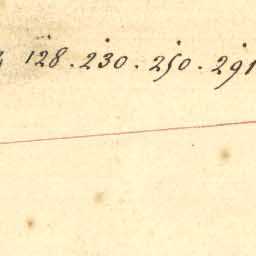 128 . 230 . 250 . 291